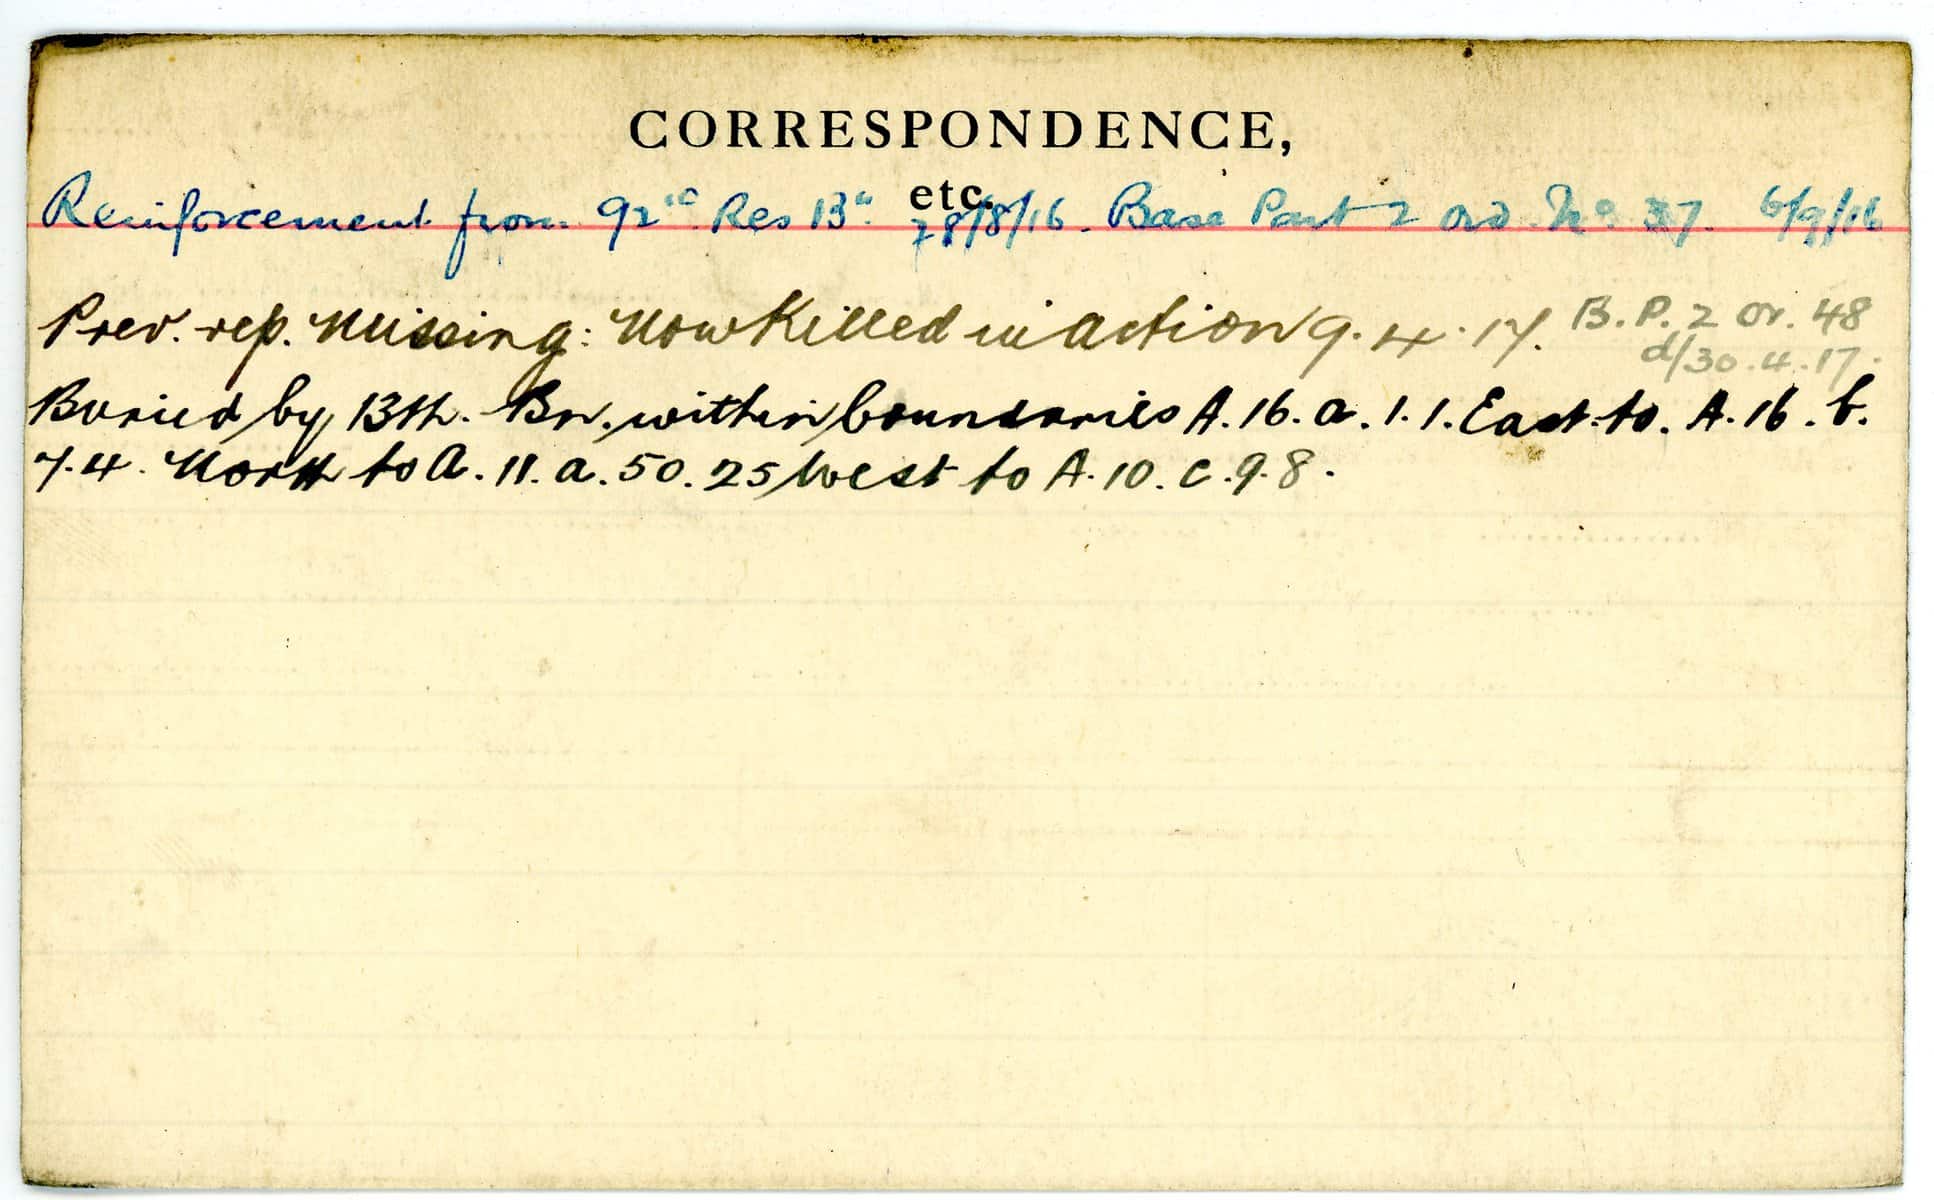 CORRESPONDENCE,
etc.
Reinforcement from 92nd Res Bn. 28/8/16. Base Part 2 ord No 37. 6/9/16
Prev. rep. Missing: Now Killed in action 9.4.17. B.P. 2 Or. 48
d/30.4.17.
Buried by 13th. Bn. within boundaries A.16.a.1.1. East to. A.16.b.
7.4. North to A.11.a.50.25 West to A.10.c.9.8.